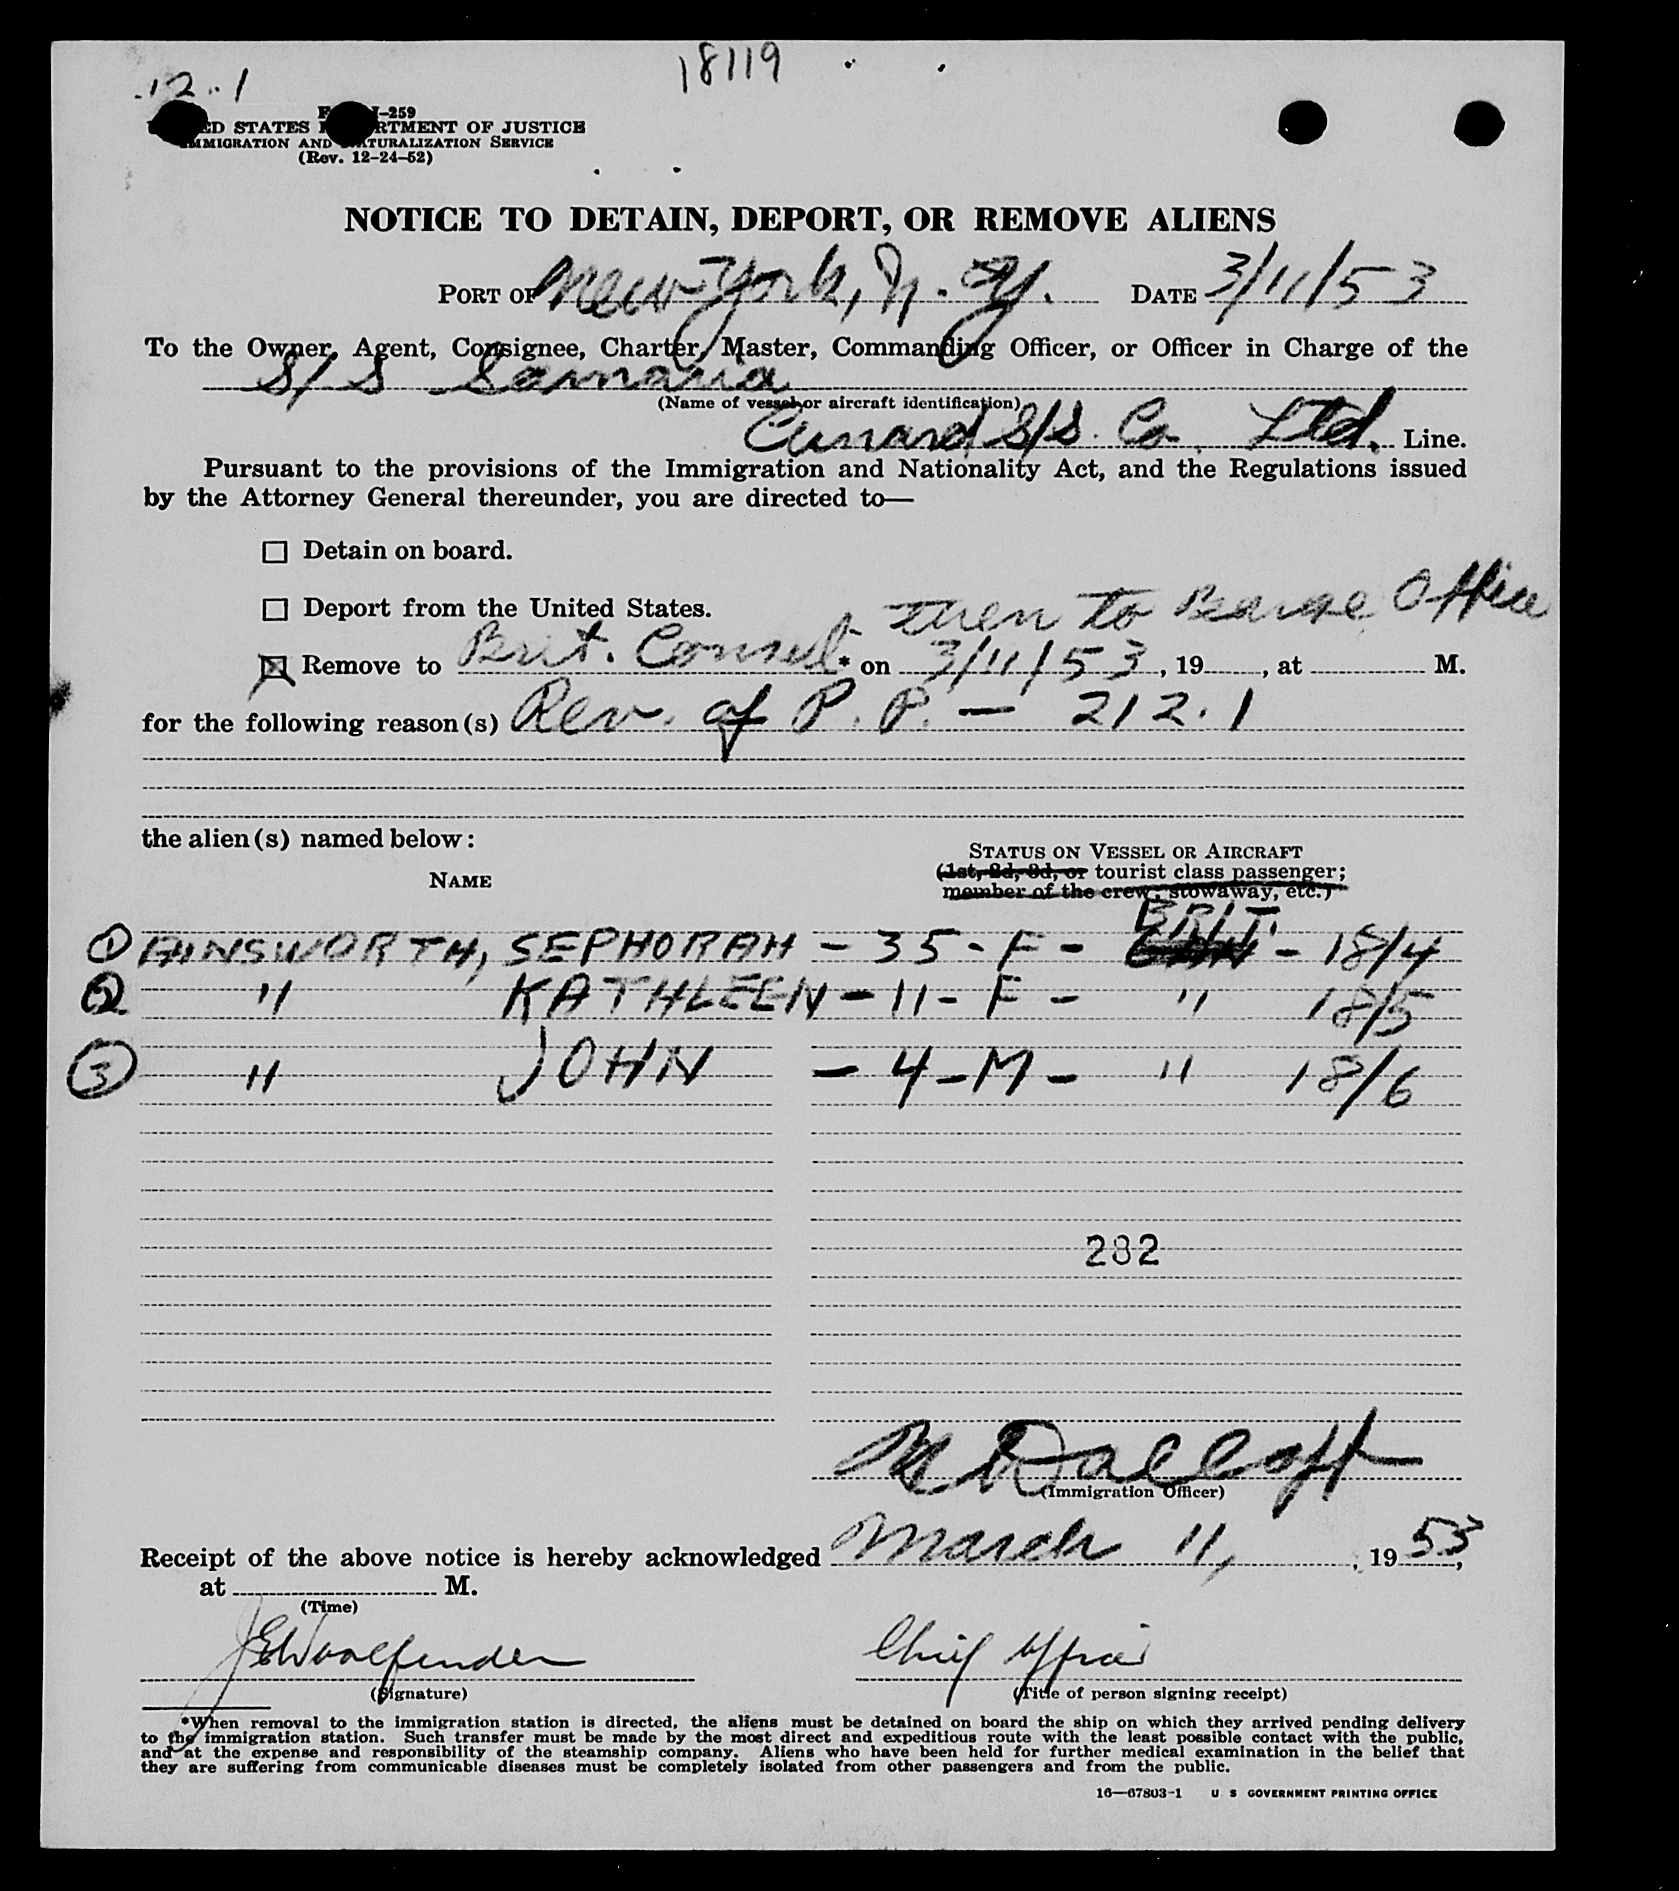 12.1
18119
I-259
STATES OF JUSTICE
IMMIGRATION AND NATURALIZATION SERVICE
(Rev. 12-24-52)
NOTICE TO DETAIN, DEPORT, OR REMOVE ALIENS
PORT OF New York, N. Y. DATE 3/11/53
To the Owner, Agent, Consignee, Charter, Master, Commanding Officer, or Officer in Charge of the
S/S Samaria
(Name of vessel or aircraft identification)
Cunard S/S. Co. Ltd. Line.
Pursuant to the provisions of the Immigration and Nationality Act, and the Regulations issued
by the Attorney General thereunder, you are directed to—
Detain on board.
Deport from the United States.
then to Barge Office
Remove to Brit. Consul * on 3/11/53, 19, at M.
for the following reason(s) Rev. of P. P. — 212.1
the alien(s) named below:
NAME
STATUS ON VESSEL OR AIRCRAFT
(1st, 2d, 3d, or tourist class passenger;
member of the crew, stowaway, etc.)
BRIT.
① AINSWORTH, SEPHORAH - 35 - F - - 18/4
② " KATHLEEN - 11 - F - " 18/5
③ " JOHN - 4 - M - " 18/6
282
(Immigration Officer)
Receipt of the above notice is hereby acknowledged March 11, , 19 53,
at M.
(Time)
Chief Officer
(Signature)
(Title of person signing receipt)
*When removal to the immigration station is directed, the aliens must be detained on board the ship on which they arrived pending delivery
to the immigration station. Such transfer must be made by the most direct and expeditious route with the least possible contact with the public,
and at the expense and responsibility of the steamship company. Aliens who have been held for further medical examination in the belief that
they are suffering from communicable diseases must be completely isolated from other passengers and from the public.
16—67803-1 U S GOVERNMENT PRINTING OFFICE